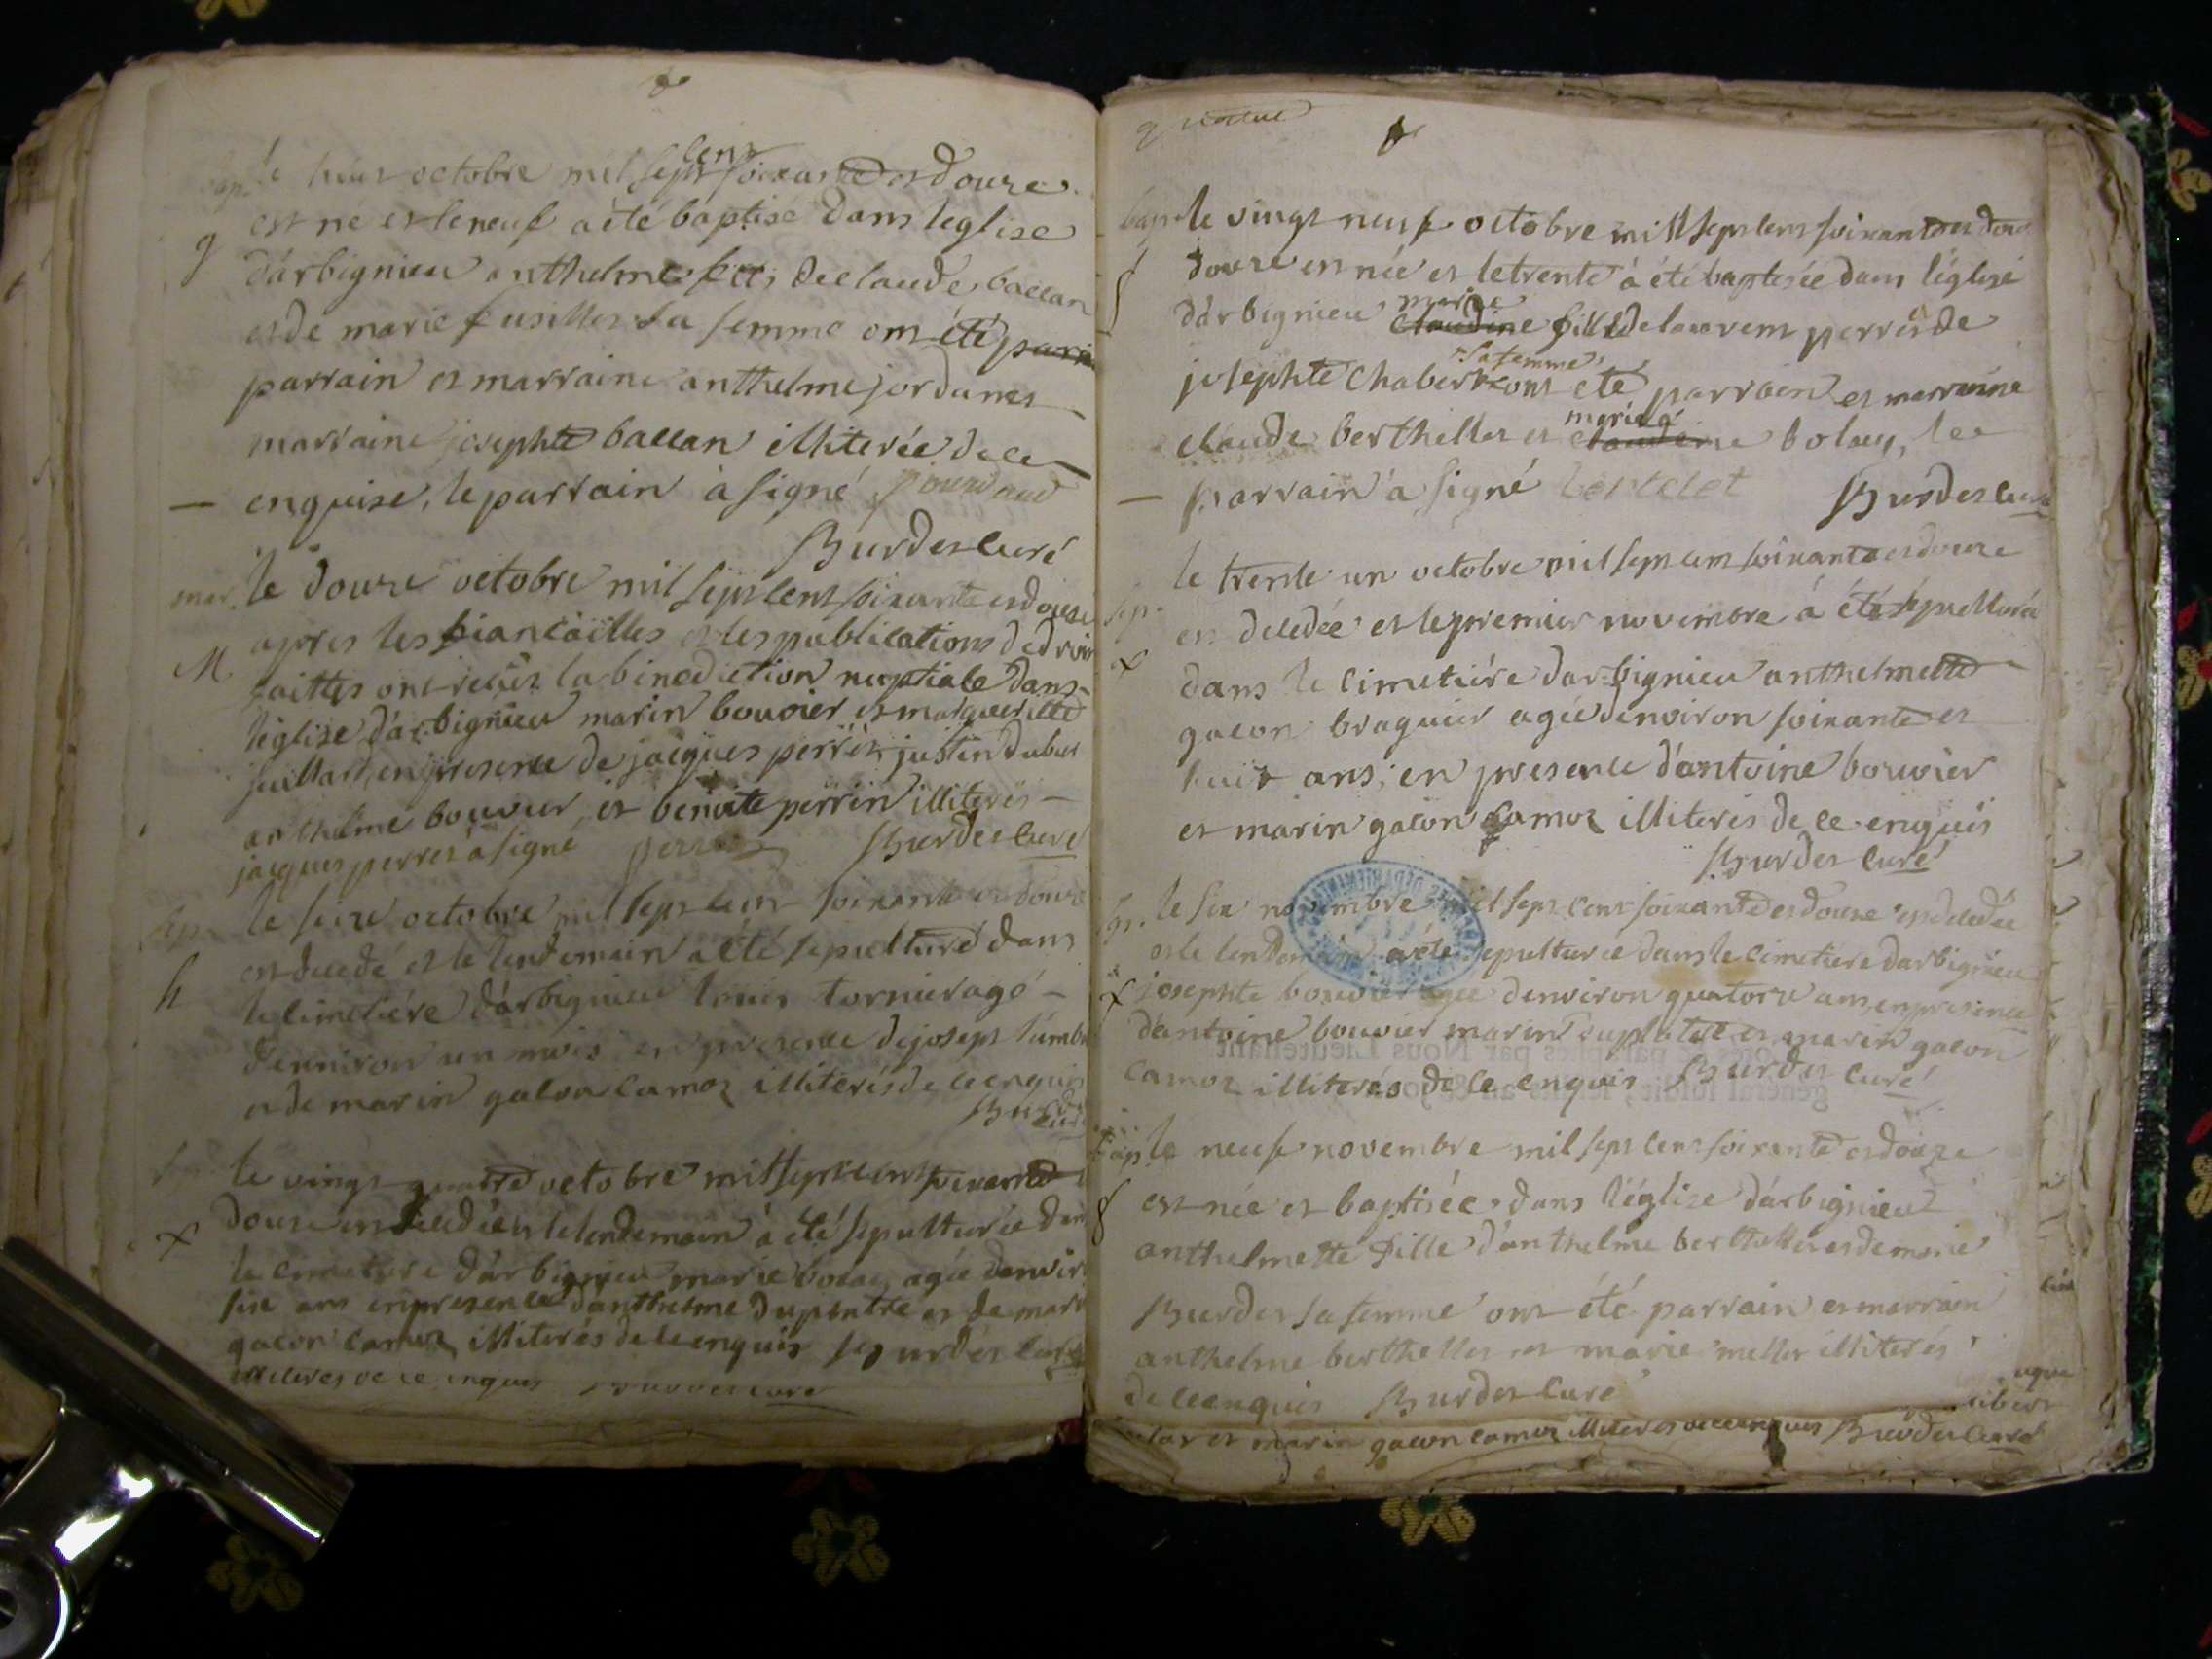 bap. le huit octobre mil sept cent soixante et douze
est né et le neuf a été baptisé dans leglise
g
dárbignieu anthelme fils de claude ballan
et de marie fusillet sa femme ont été
parrain et marraine anthelme jordan et
marraine josephte ballan illiterée de ce
enquise, le parrain à signé jourdand
Burdet curé
mar. le douze octobre mil sept cent soixante et douze
apres les fiancailles et les publications de droit
M
faittes ont reçus la binediction nuptiale dans
léglise dárbignieu marin bouvier et margueritte
juillard, en presence de jacques perret, justin dubus
anthelme bouvier, et benoite perrin illiterés
jacques perret à signé perret Burdet curé
sep. le seize octobre mil sept cent soixante et douze
est decedé et le lendemain a été sepulturé dans
h
le cimetiére dárbignieu louis tornier agé
denviron un mois en presence de joseph
et de marin galon camoz illiterés de ce enquis
Burdet curé
sep. le vingt quatre octobre mil sept cent soixante
x
douze est decedée et le lendemain à été sepulturée dans
le cimetiere dárbignieu marie bolay agée denviron
six ans en presence dánthelme dupintre et de marin
galon camoz illiterés de ce enquis Burdet curé
illiterés de ce enquis Burdet curé
bap. le vingt neuf octobre mill sept cent soixante et
f
douze est née et le trente à été baptisée dans léglise
dárbignieu marie fille de laurent perret de
josephte chabert sa femme ont été parrain et marraine
claude berthellet et marie bolay, le
parrain à signé bertelet Burdet curé
le trente un octobre mil sept cent soixante et douze
sep.
est decedée et le premier novembre à été sepulturée
x
dans le cimetiére dar-bignieu anthelmette
galon braquier agée denviron soixante et
huit ans, en presence dántoine bouvier
et marin galon camoz illiterés de ce enquis
Burdet curé
sep. le six novembre mil sept cent soixante et douze est decedée
et le lendemain a été sepulturée dans le cimetiere darbignieu
x josephte bouvier agée denviron quatorze ans, en presence
dántoine bouvier marin et marin galon
camoz illiterés de ce enquis Burdet curé
bap. le neuf novembre mil sept cent soixante et douze
f
est née et baptisée dans léglise dárbignieu
anthelmette fille dánthelme berthellet et de marie
Burdet sa femme ont été parrain et marrain
anthelme berthellet et marie mellet illiterés
de ce enquis Burdet curé
et marin galon camoz illiterés de ce enquis Burdet curé